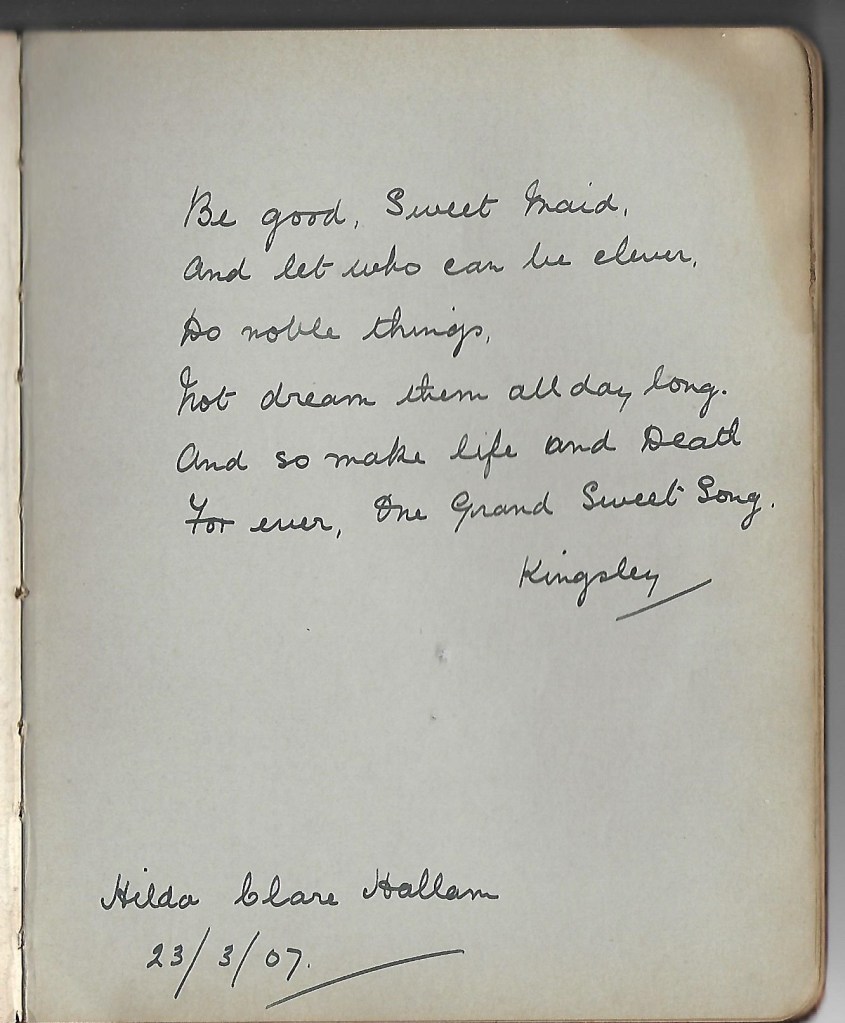 Be good, Sweet Maid,
And let who can be clever,
Do noble things,
Not dream them all day long.
And so make life and Death
For ever, One Grand Sweet Song.
Kingsley
Hilda Clare Hallam
23/3/07.